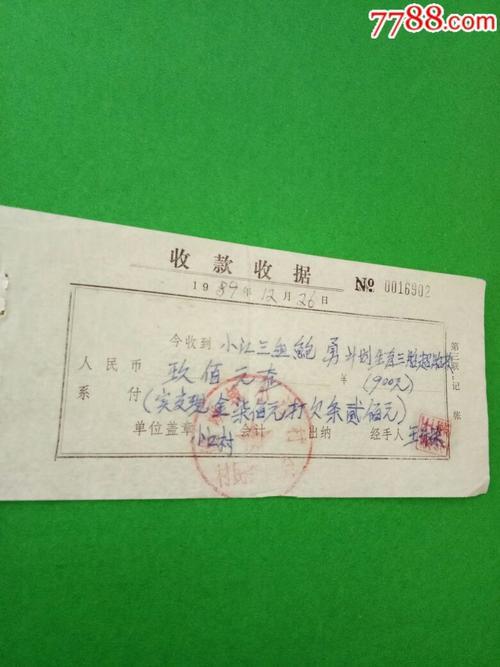 7788.com
收款收据 № 0016902
1989年12月26日
今收到 小江三组鲍勇计划生育三胎超
人民币 玖佰元 ¥ (900元)
系付 (实支现金柒佰元打欠条贰佰元)
单位盖章 小江村 会计 出纳 经手人 王
第三联：记账